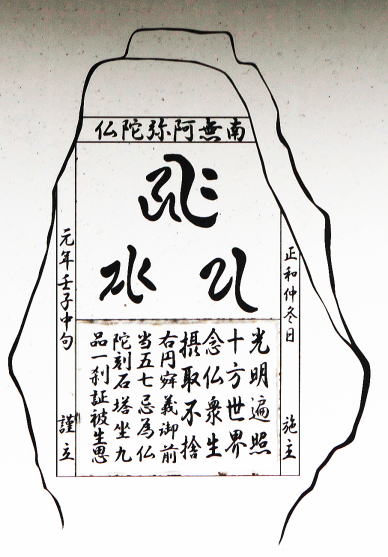 南無阿弥陀仏
正和仲冬日 施立
光明遍照
十方世界
念仏衆生
攝取不捨
右円舜義御前
当五七忌為仏
陀刻石塔坐九
品一刹証被生恩
元年壬子中旬 謹立